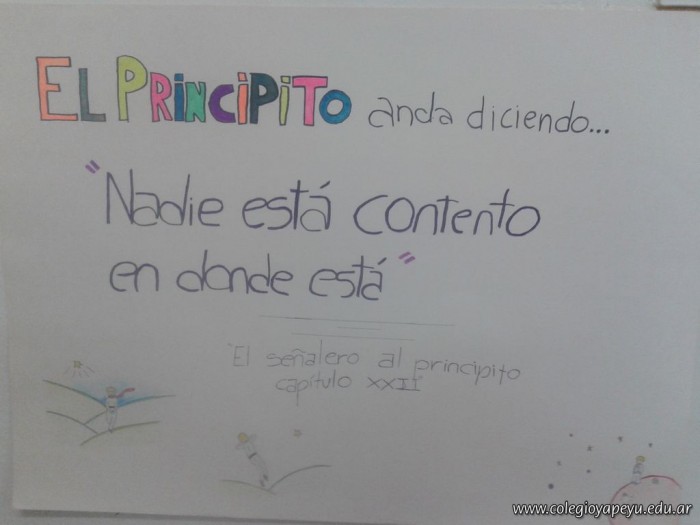 EL PRINCIPITO anda diciendo...
"Nadie está contento
en donde está"
"El señalero al principito
capítulo XXII
www.colegioyapeyu.edu.ar